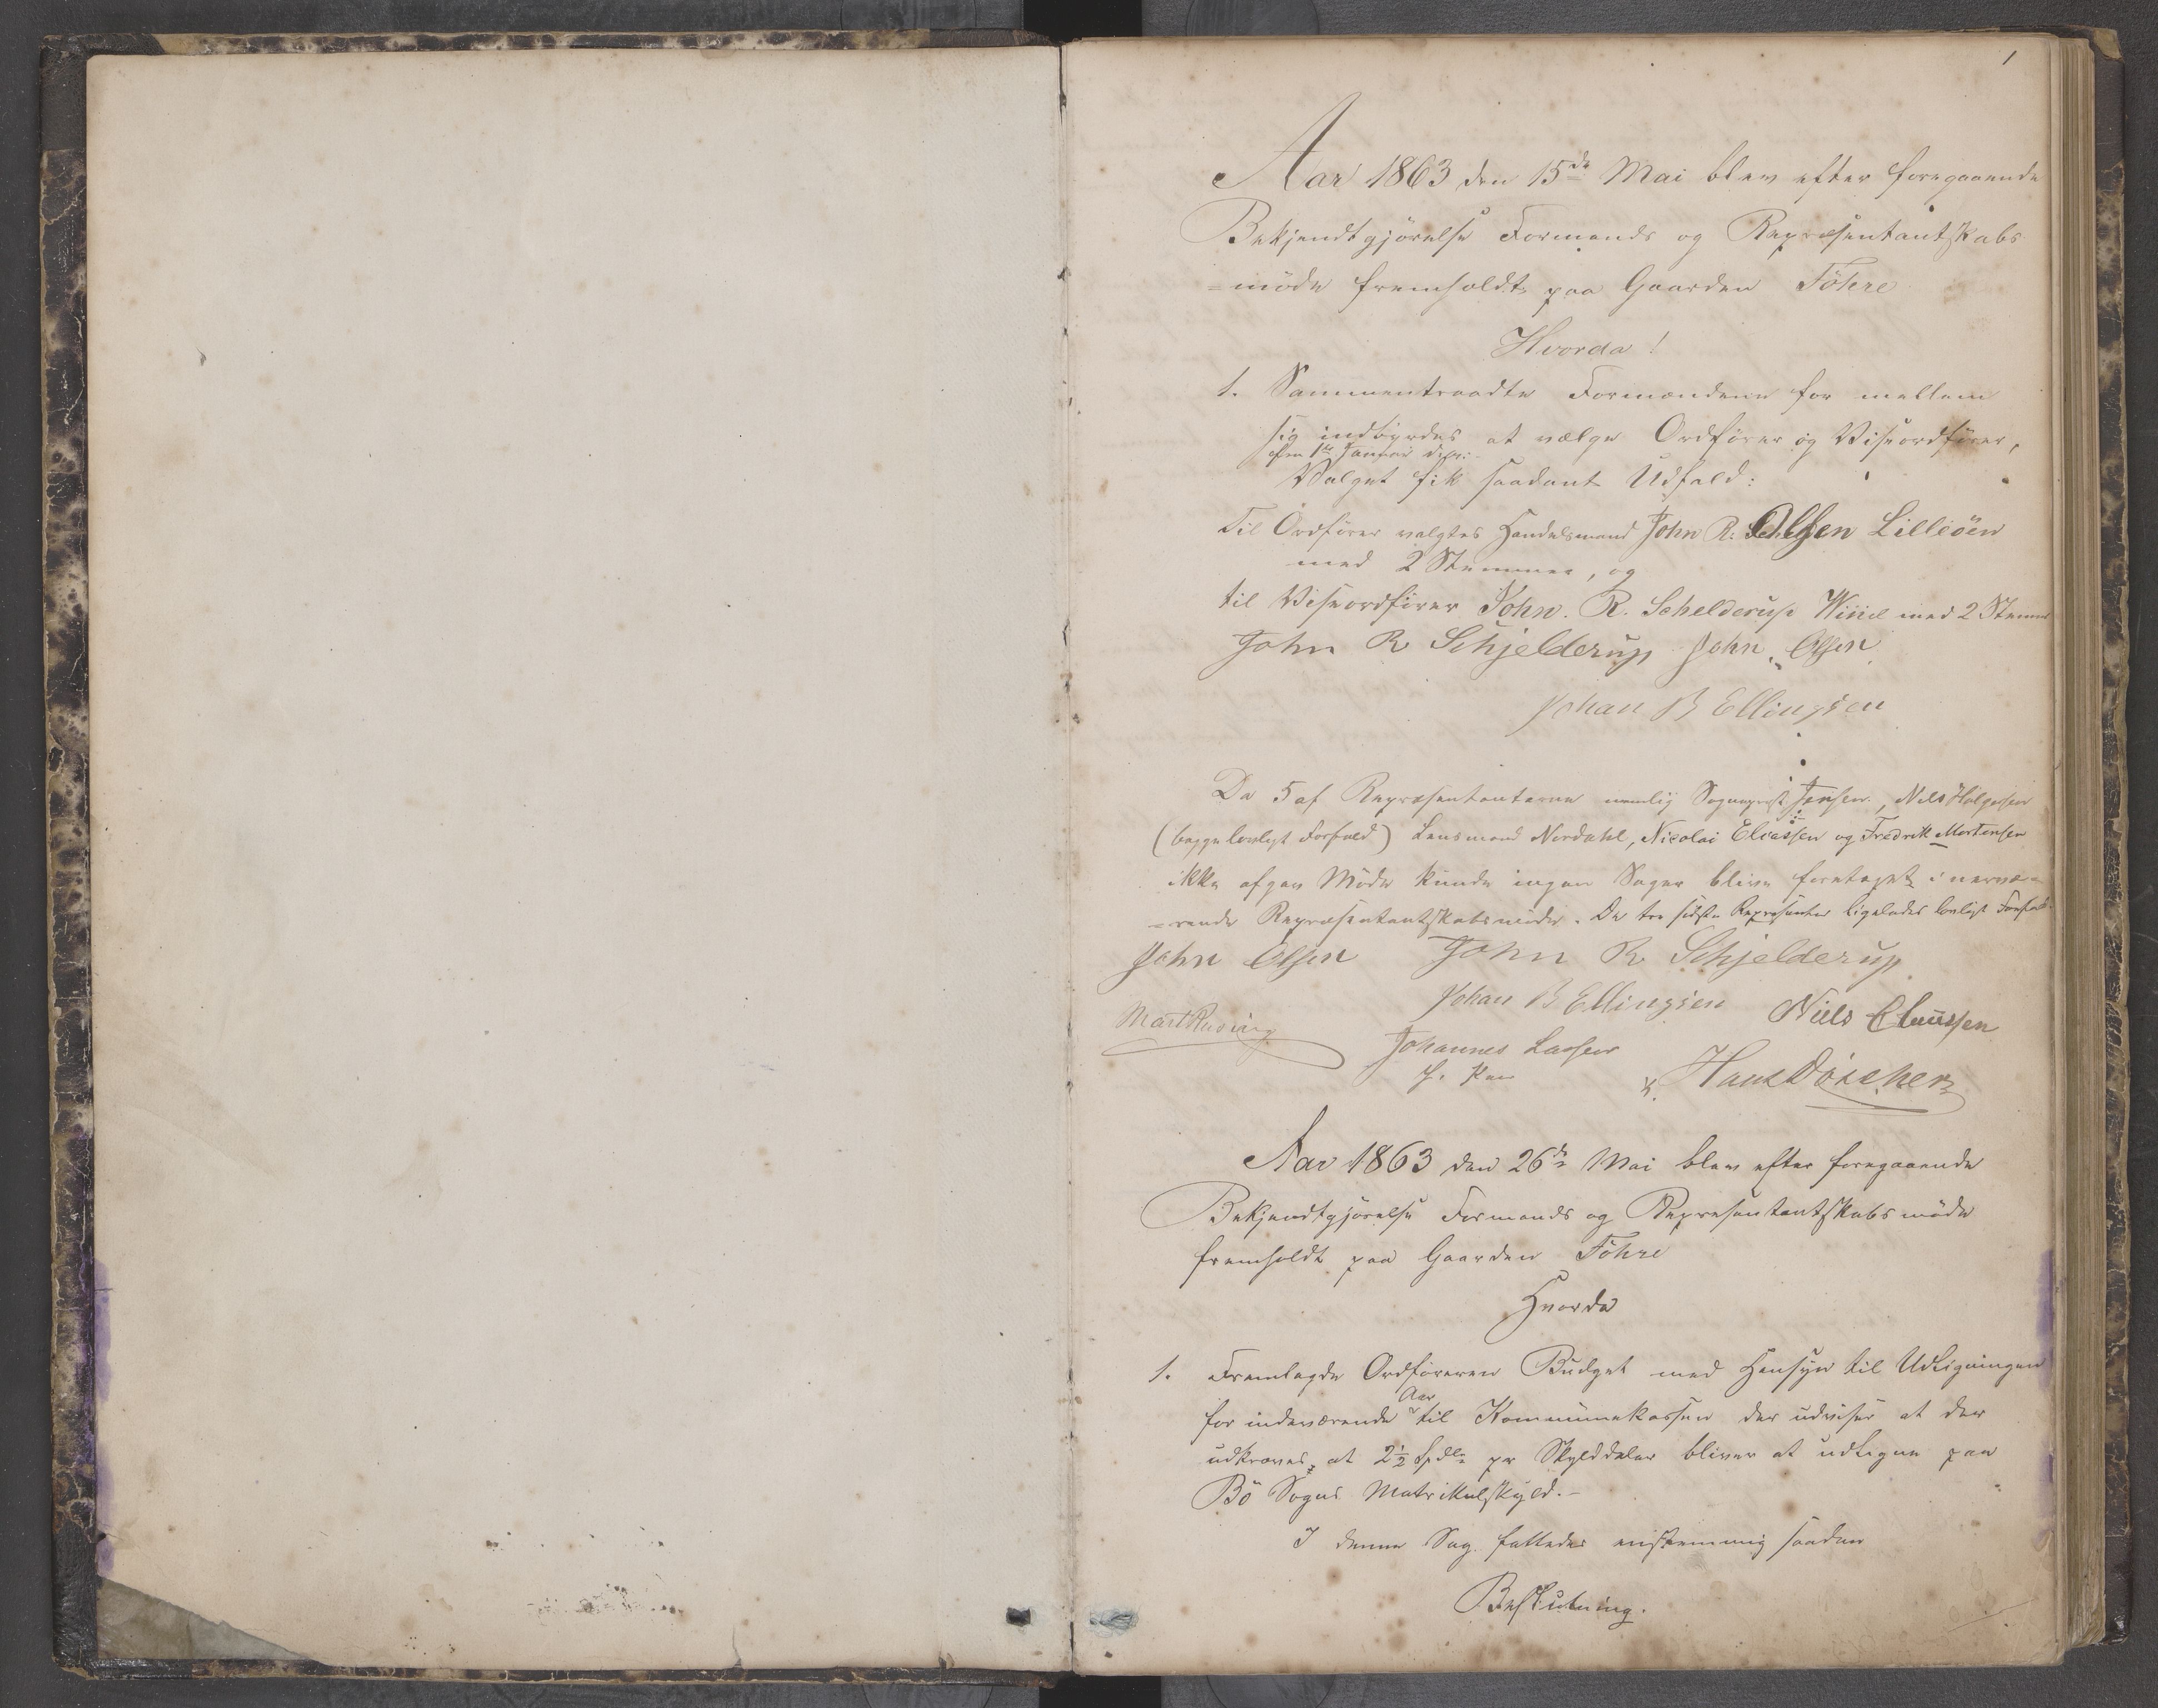 1
Aar 1863 den 15de Mai blev efter foregaaende
Bekjendtgjörelse Formands og Repræsentantskabs
=möde fremholdt paa Gaarden Föhre
Hvorda!
1. Sammentraadte Formændene for mellem
sig indbyrdes at vælge Ordförer og Viseordförer,
fra 1ste Januar
Valget fik saadant Udfald:
Til Ordförer valgtes Handelsmand John R: Olsen Lilleöen
med 2 Stemmer, og
til Viseordförer John. R. Schelderup Wiiel med 2 Stemmer
John R Schjelderup John Olsen
Johan B Ellingsen
Da 5 af Repræsentanterne nemlig Sogneprest Jensen, Nils Helgesen
(begge lovligt Forfald) Lensmand Nordahl, Nicolai Eliassen og Fredrik Mortensen
ikke afgav Möde kunde ingen Sager blive foretaget i nærvæ=
=rende Repræsentantskabsmöde. De tre sidste Repræsenter ligeledes lovligt Forfald.
John Olsen John R Schjelderup
Johan B Ellingsen Niels Claussen
Mart Rusing
Johannes Larsen
Hans Döscher
Aar 1863 den 26de Mai blev efter foregaaende
Bekjendtgjörelse Formands og Representantskabsmöde
fremholdt paa Gaarden Föhre
Hvorda
1. Fremlagde Ordföreren Budget med Hensyn til Udligningen
for indeværende Aar til Kommunekassen der udviser at der
udkræves, at 2½ Spdlr pr Skylddaler bliver at udligne paa
Bö Sogns Matrikulskyld.-
I denne Sag fattedes enstemmig saadan
Beslutning.